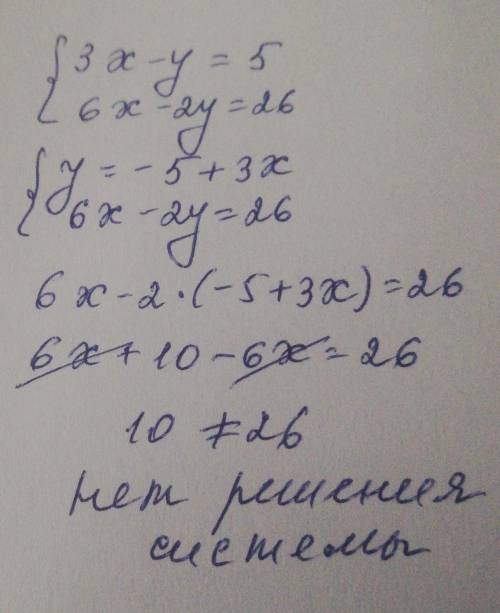 3x - y = 5
6x - 2y = 26
y = -5 + 3x
6x - 2y = 26
6x - 2·(-5+3x) = 26
6x + 10 - 6x = 26
10 ≠ 26
нет решения
системы